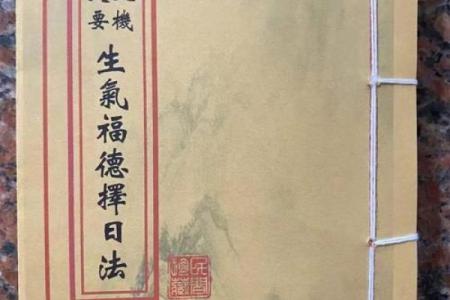 機
要
生氣福德擇日法